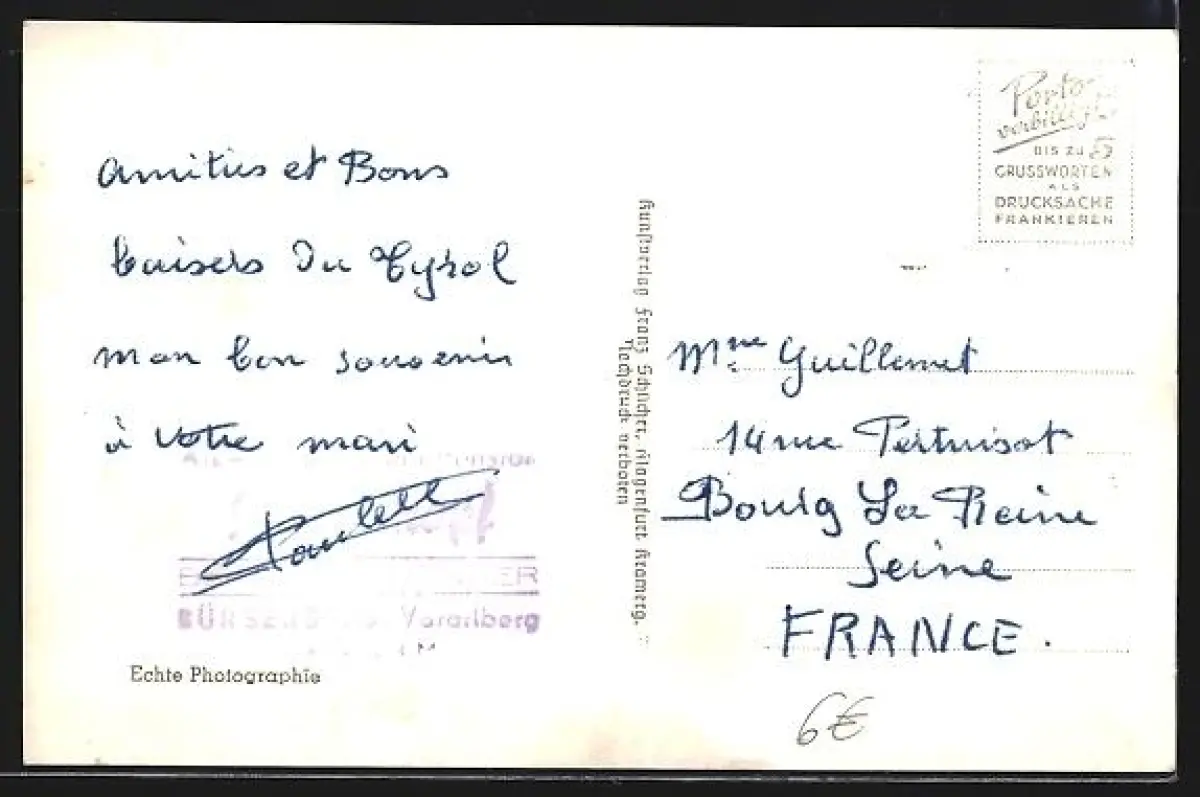 Amitiés et Bons
baisers du Tyrol
mon bon souvenir
à votre mari
Paulette
BÜRSERBERG Vorarlberg
Echte Photographie
Kunstverlag Franz Schilcher, Klagenfurt
Nachdruck verboten
Porto-
verbilligt
BIS ZU 5
GRUSSWORTEN
ALS
DRUCKSACHE
FRANKIEREN
Mme Guillemet
14 rue Pertuisot
Bourg La Reine
Seine
FRANCE.
6€